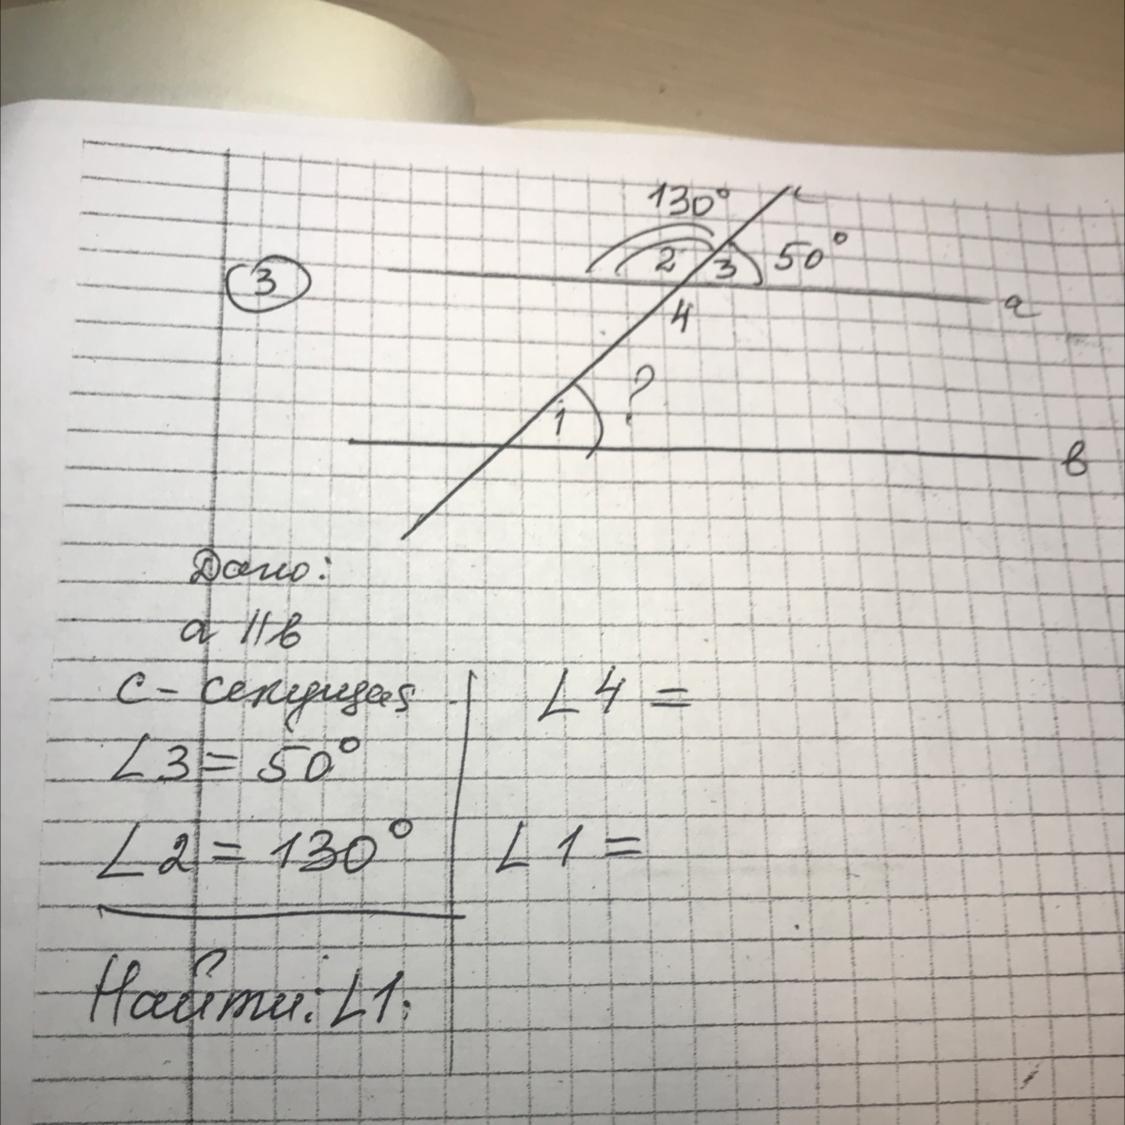 3
130°
c
2
3
50°
a
4
?
1
в
Дано:
a || в
c - секущая
∠3 = 50°
∠2 = 130°
Найти: ∠1.
∠4 =
∠1 =